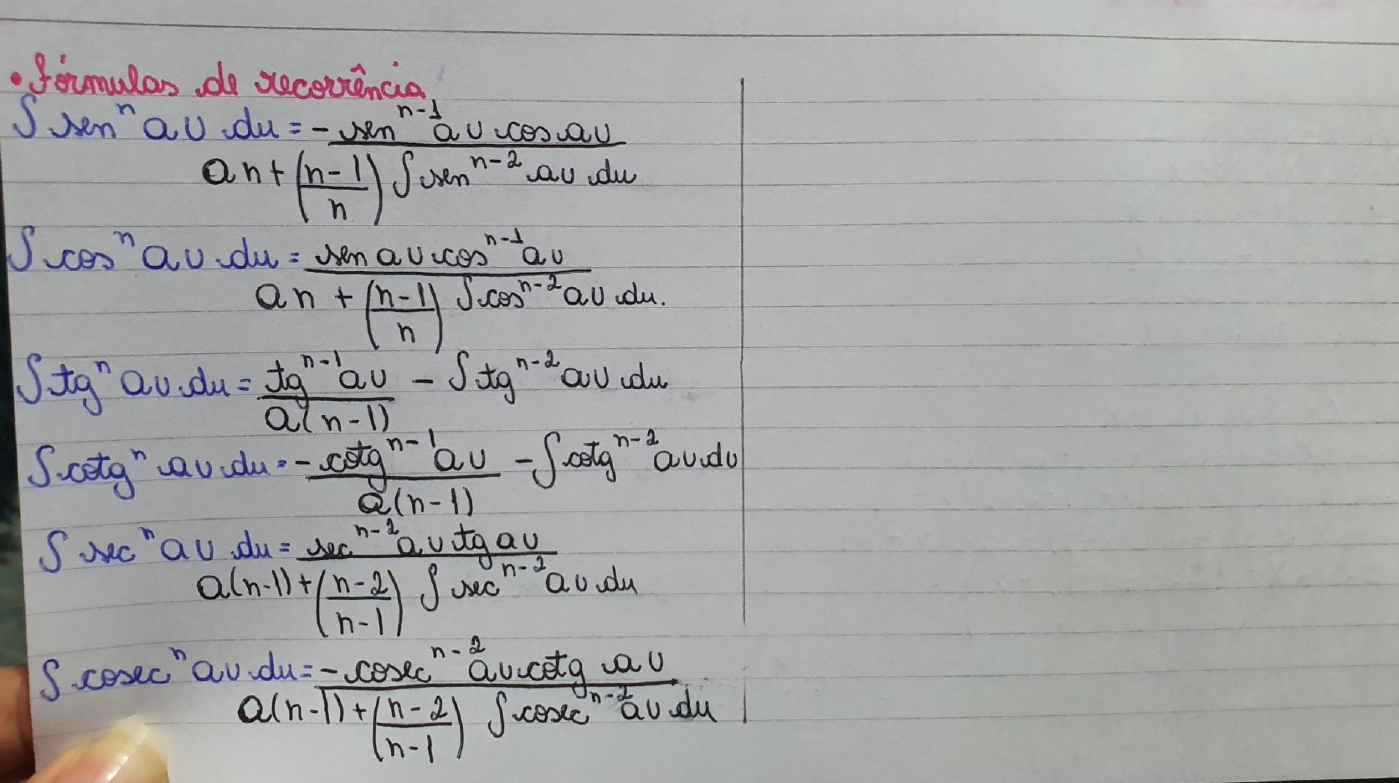 • Fórmulas de recorrência
∫ senⁿ au du = -senⁿ⁻¹ au cos au
an + (n-1/n) ∫ senⁿ⁻² au du
∫ cosⁿ au du = sen au cosⁿ⁻¹ au
an + (n-1/n) ∫ cosⁿ⁻² au du.
∫ tgⁿ au du = tgⁿ⁻¹ au / a(n-1) - ∫ tgⁿ⁻² au du
∫ cotgⁿ au du = -cotgⁿ⁻¹ au / a(n-1) - ∫ cotgⁿ⁻² au du
∫ secⁿ au du = secⁿ⁻² au tg au
a(n-1) + (n-2/n-1) ∫ secⁿ⁻² au du
∫ cosecⁿ au du = -cosecⁿ⁻² au cotg au
a(n-1) + (n-2/n-1) ∫ cosecⁿ⁻² au du